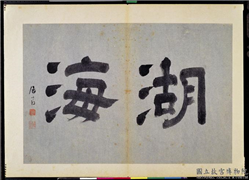 湖海
國立故宮博物院